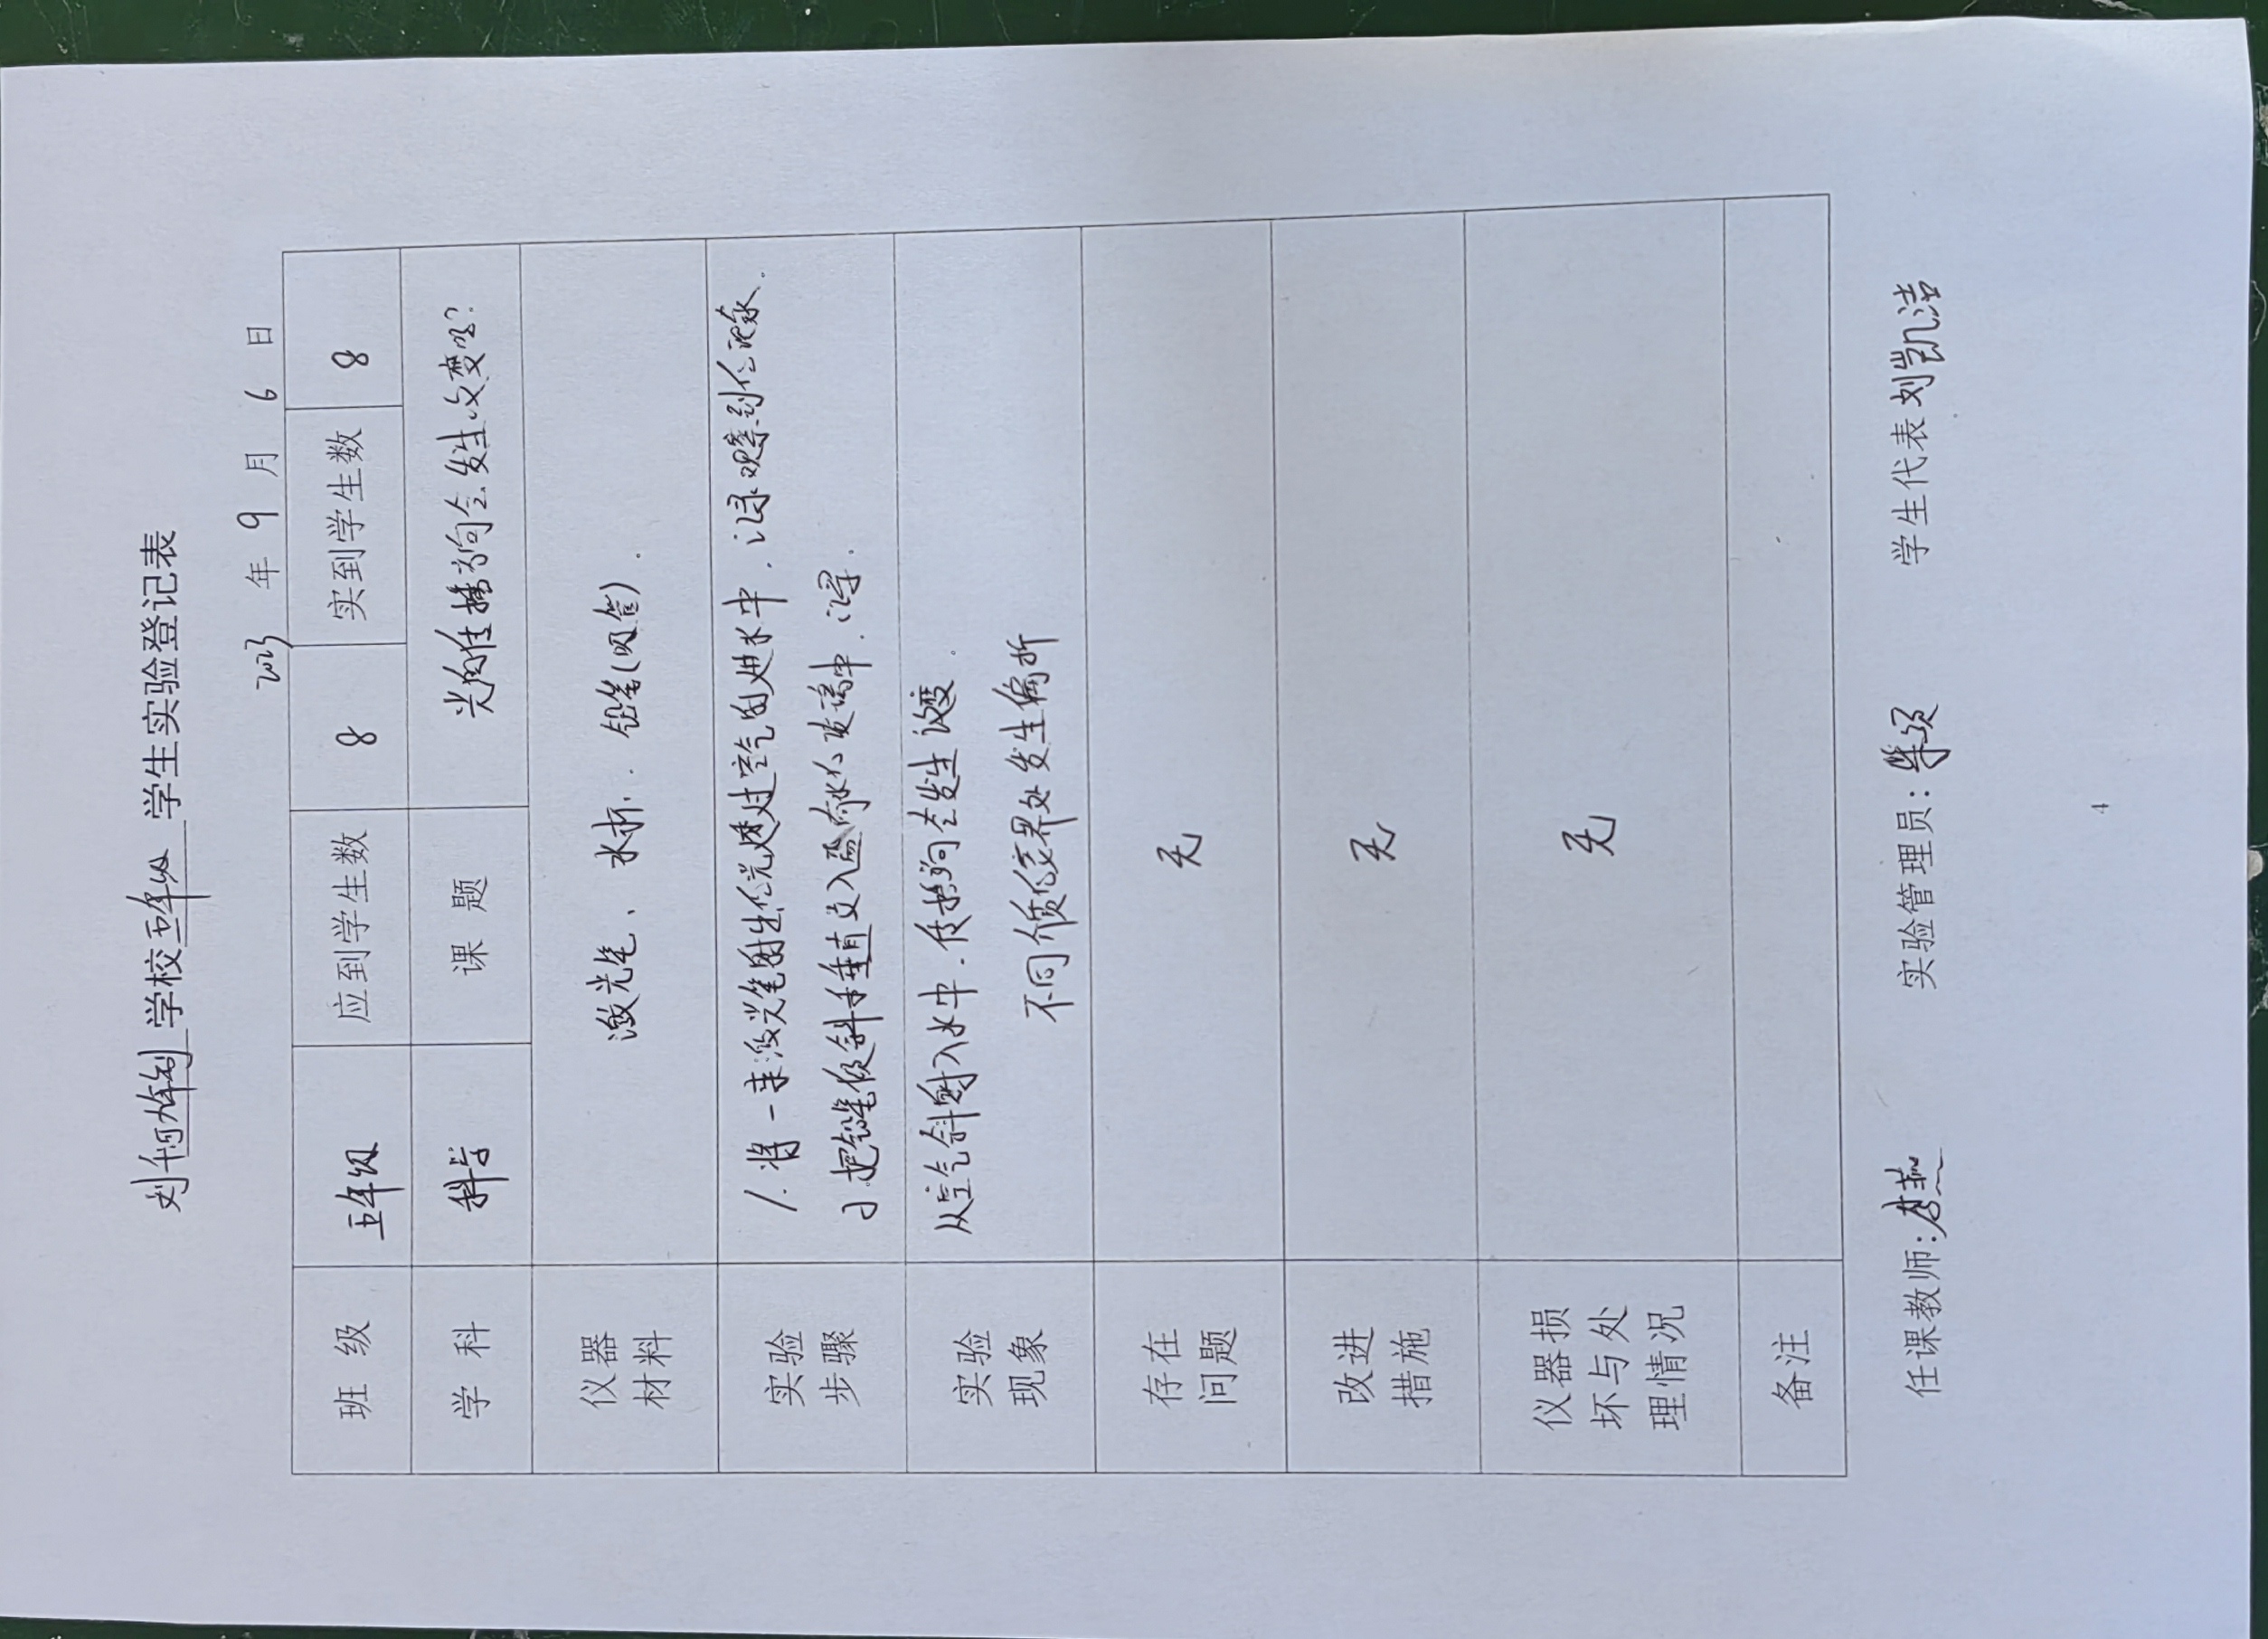 学校五年级学生实验登记表
2023年9月6日
班级 五年级 应到学生数 8 实到学生数 8
学科 科学 课题 光的传播方向会发生改变吗?
仪器材料 激光笔、水杯、铅笔(吸管).
实验步骤 1.将一束激光笔射出的光透过空气射进水中,记录观察到的现象.
2把铅笔倾斜和垂直 入盛水的玻璃中.记录.
实验现象 从空气斜射入水中.传播方向会发生改变.
不同介质的交界处发生偏折
存在问题 无
改进措施 无
仪器损坏与处理情况 无
备注
任课教师: 实验管理员: 学生代表 刘凯洁
4